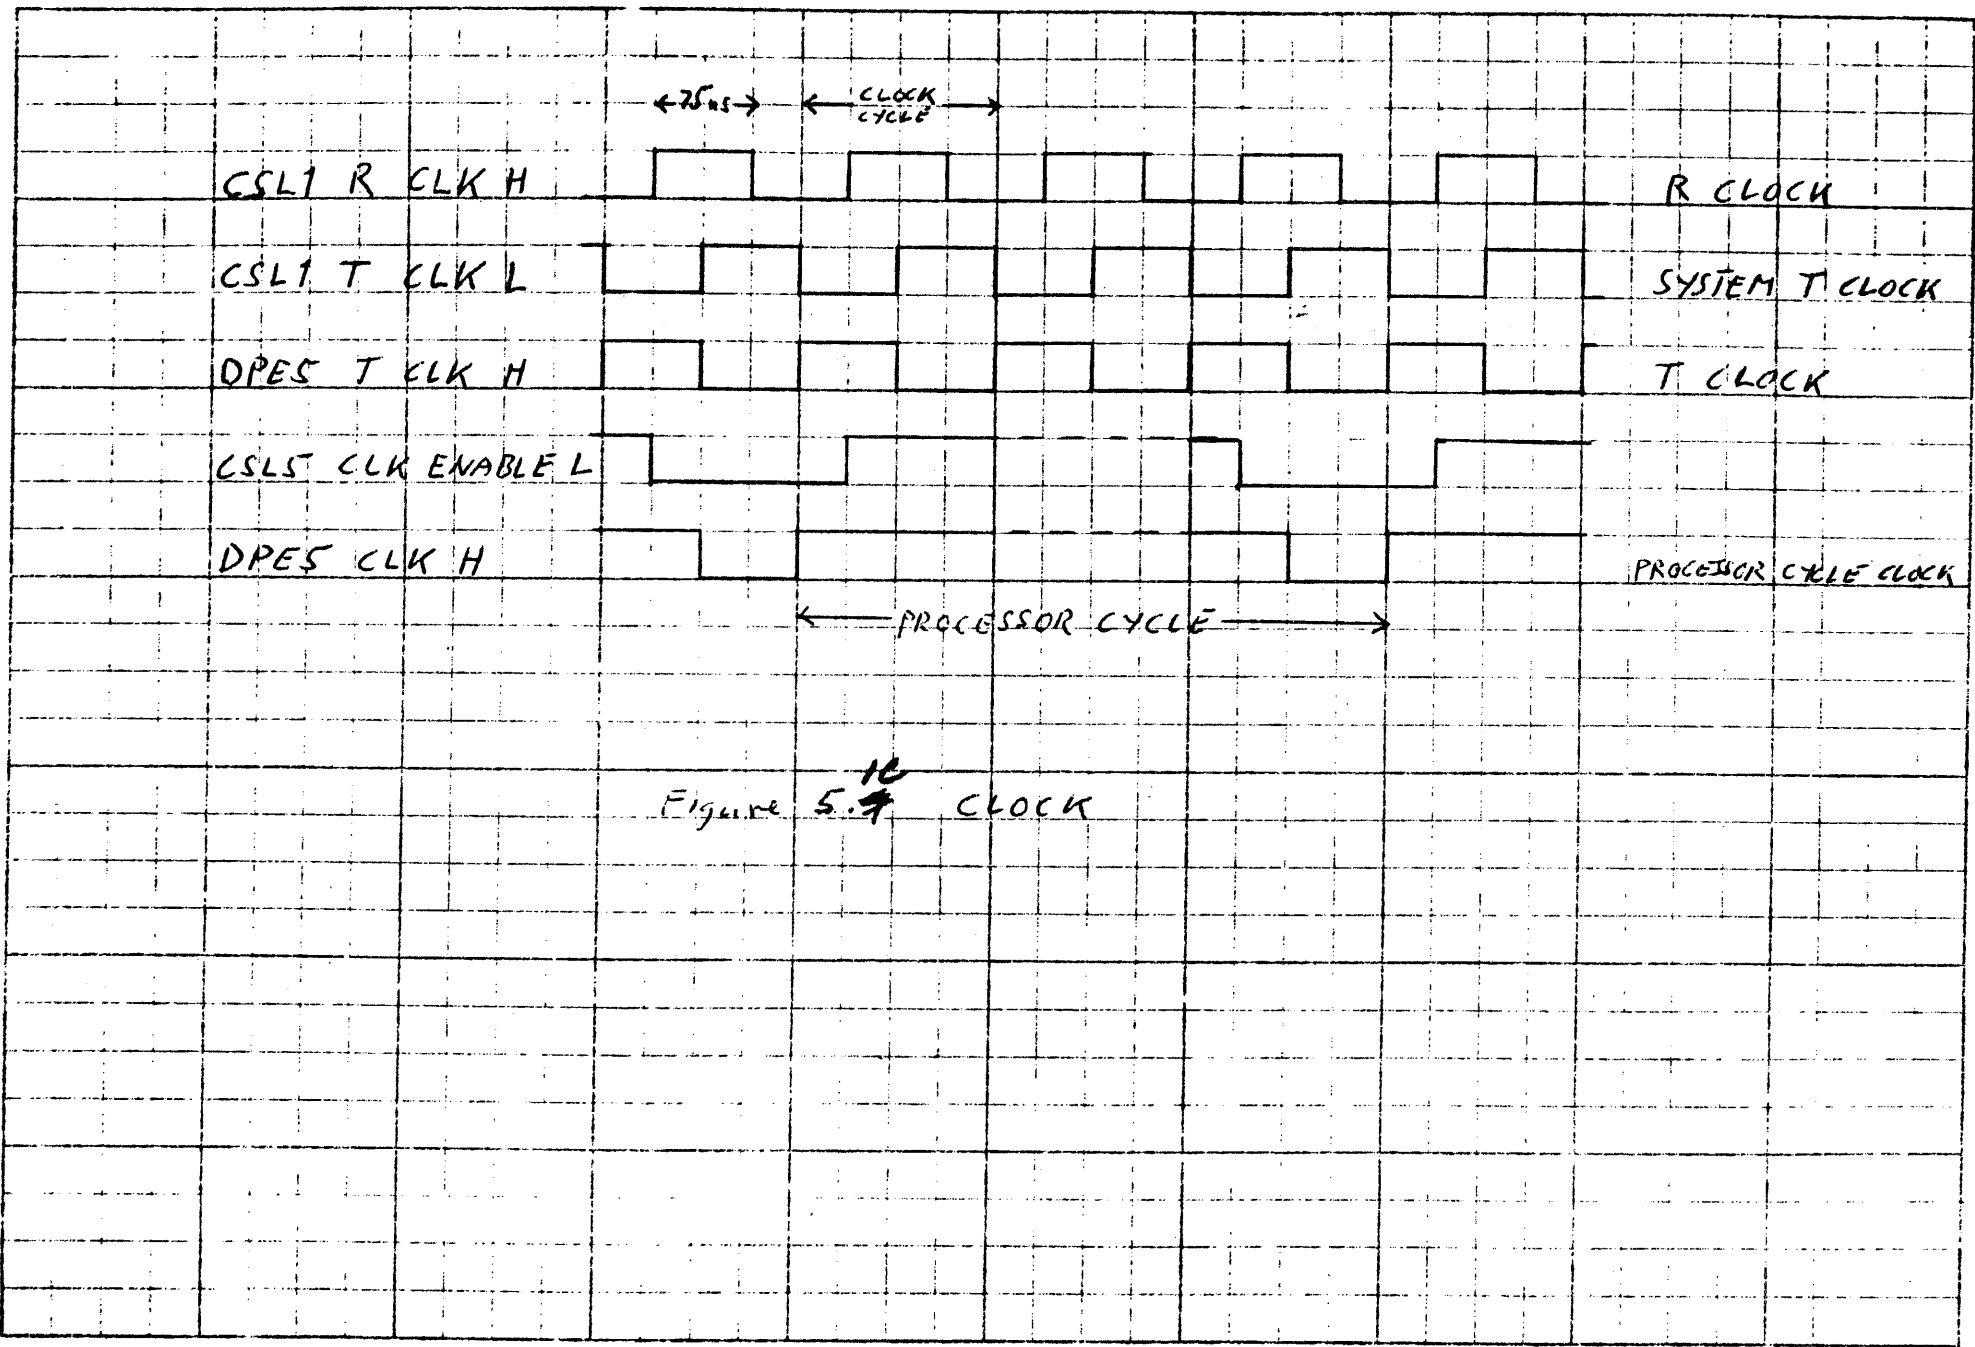 75ns CLOCK CYCLE
CSL1 R CLK H R CLOCK
CSL1 T CLK L SYSTEM T CLOCK
DPE5 T CLK H T CLOCK
CSL5 CLK ENABLE L
DPE5 CLK H PROCESSOR CYCLE CLOCK
PROCESSOR CYCLE
Figure 5. CLOCK